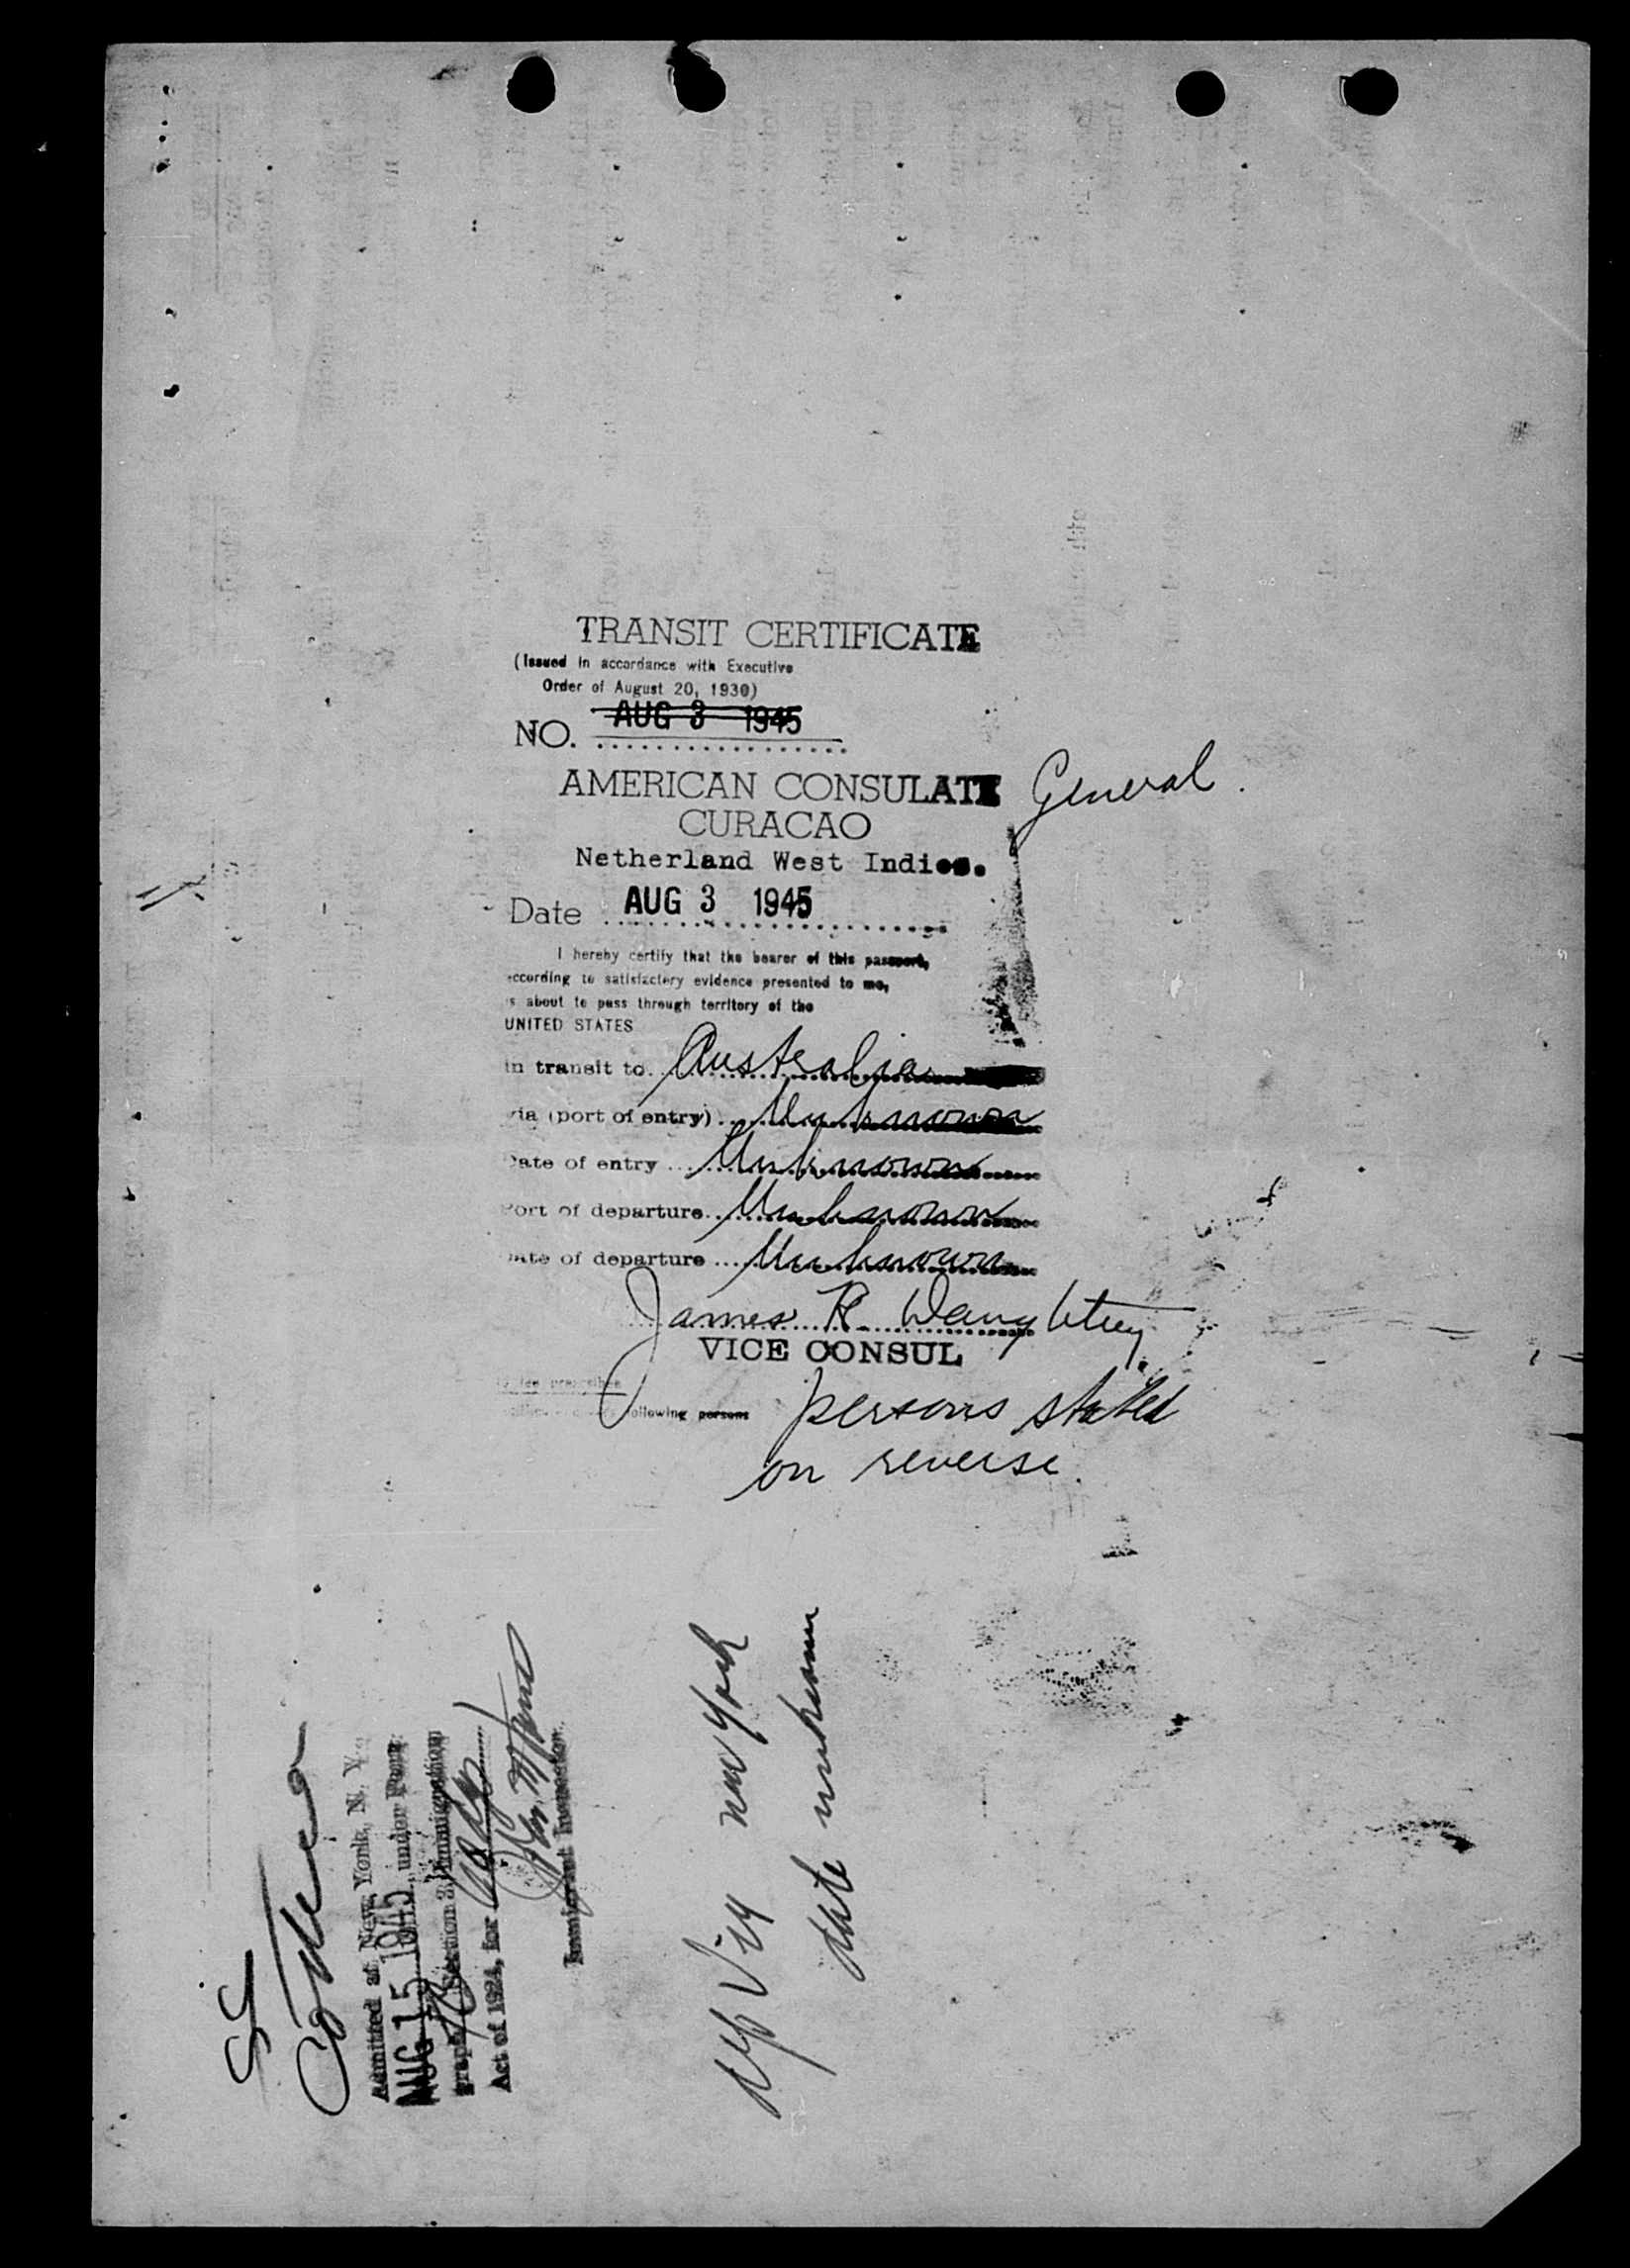 TRANSIT CERTIFICATE
(Issued in accordance with Executive
Order of August 20, 1930)
NO. AUG 3 1945
AMERICAN CONSULATE General.
CURACAO
Netherland West Indies.
Date AUG 3 1945
I hereby certify that the bearer of this passport,
according to satisfactory evidence presented to me,
is about to pass through territory of the
UNITED STATES
in transit to Australia
via (port of entry) Unknown
Date of entry Unknown
Port of departure Unknown
Date of departure Unknown
James R. Daughtry
VICE CONSUL
following persons persons stated
on reverse.
SS
Admitted at New York, N. Y.
AUG 15 1945, under Para-
graph Section 3, Immigration
Act of 1924, for
Immigrant Inspector.
Via New York
date unknown